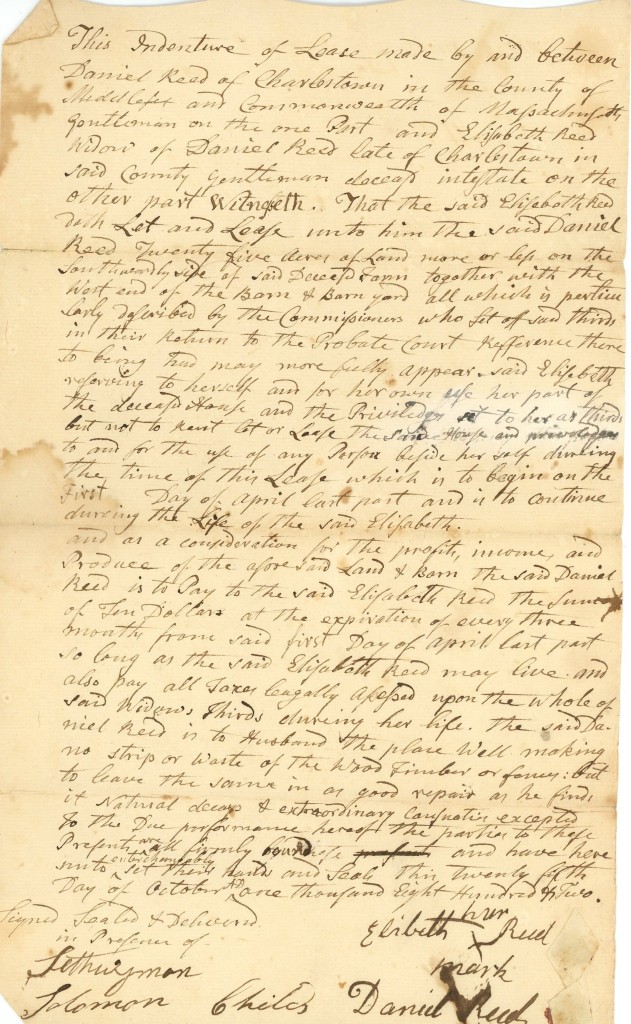 This Indenture of Lease made by and between
Daniel Reed of Charlestown in the County of
Middlesex and Commonwealth of Massachusetts
Gentleman on the one Part and Elisabeth Reed
Widow of Daniel Reed late of Charlestown in
said County Gentleman deceasd intestate on the
other part Witneseth. That the said Elisebeth Reed
doth Let and Lease unto him the said Daniel
Reed Twenty five Acres of Land more or less on the
Southwardly side of said Deceasd Farm together with the
West end of the Barn & Barn yard all which is perticu
larly described by the Commissioners who Set off said thirds
in their Return to the Probate Court Refference there
to being had may more fully appear. said Elisebeth
reserving to herself and for her own use her part of
the deceasd House and the Priviledges set to her as Thirds
but not to Rent Let or Lease the said House and priviledges
to and for the use of any Person beside her self dureing
the time of this Lease which is to begin on the
First Day of April last past and is to continue
dureing the Life of the said Elisabeth.
and as a consideration for the profits, income, and
Produce of the afore said Land & Barn the said Daniel
Reed is to Pay to the said Elisabeth Reed the Sum
of Ten Dollars at the expiration of every three
months from said first Day of April last past
so long as the said Elisabeth Reed may live. and
also pay all Taxes leagally Assessed upon the whole of
said Widows Thirds dureing her life. the said Da-
niel Reed is to Husband the place Well making
no strip or waste of the Wood Timber or fences: but
to leave the same in as good repair as he finds
it Natural decays & extraordinary Casualties excepted
To the Due performance hereof the parties to these
Presents are firmly and have here
unto enterchangably set their hands and seals this twenty fifth
Day of October AD one thousand Eight Hundred & Two.
Signed Sealed & Deliverd
in Presence of
her
Elsibeth X Reed
mark
Seth Wyman
Solomon Childs Daniel Reed